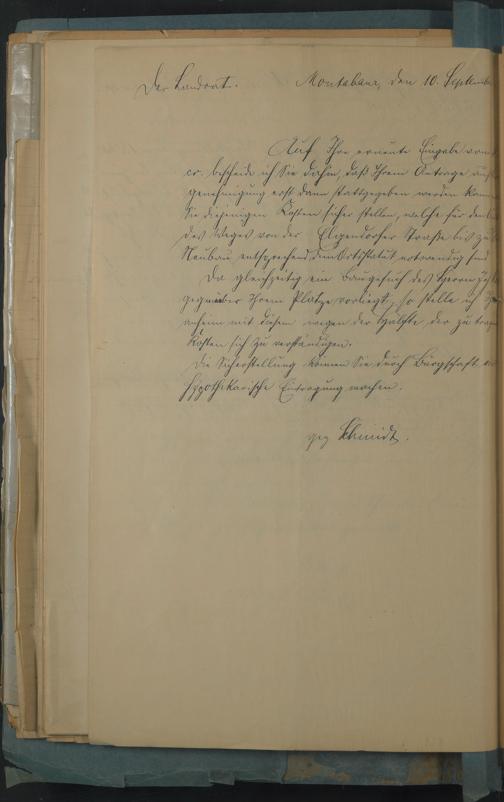 Der Landrat. Montabaur, den 10. Septembe
Auf Ihre erneute Eingabe vom
cr. bescheide ich Sie dahin, daß Ihrem Antrage auf
genehmigung erst dann stattgegeben werden kann
Sie diejenigen Kosten sicher stellen, welche für den
des Weges von der Elgendorfer Straße bis zu
Neubau entsprechend dem Ortsstatut notwendig sind
Da gleichzeitig ein Baugesuch des Herrn
gegenüber Ihrem Platze vorliegt, so stelle ich
anheim mit diesem wegen der Hälfte der zu tragen
Kosten sich zu verständigen.
Die Sicherstellung können Sie durch Bürgschaft
hypothekarische Eintragung machen.
gez Schmidt.